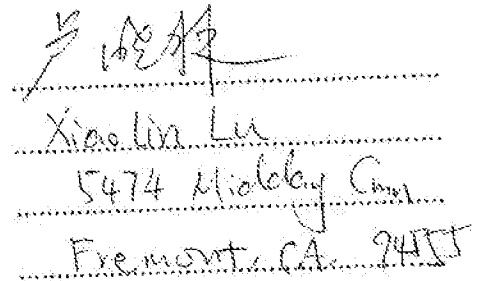 卢晓
Xiaolin Lu
5474 Midday Cmn
Fremont, CA 94555